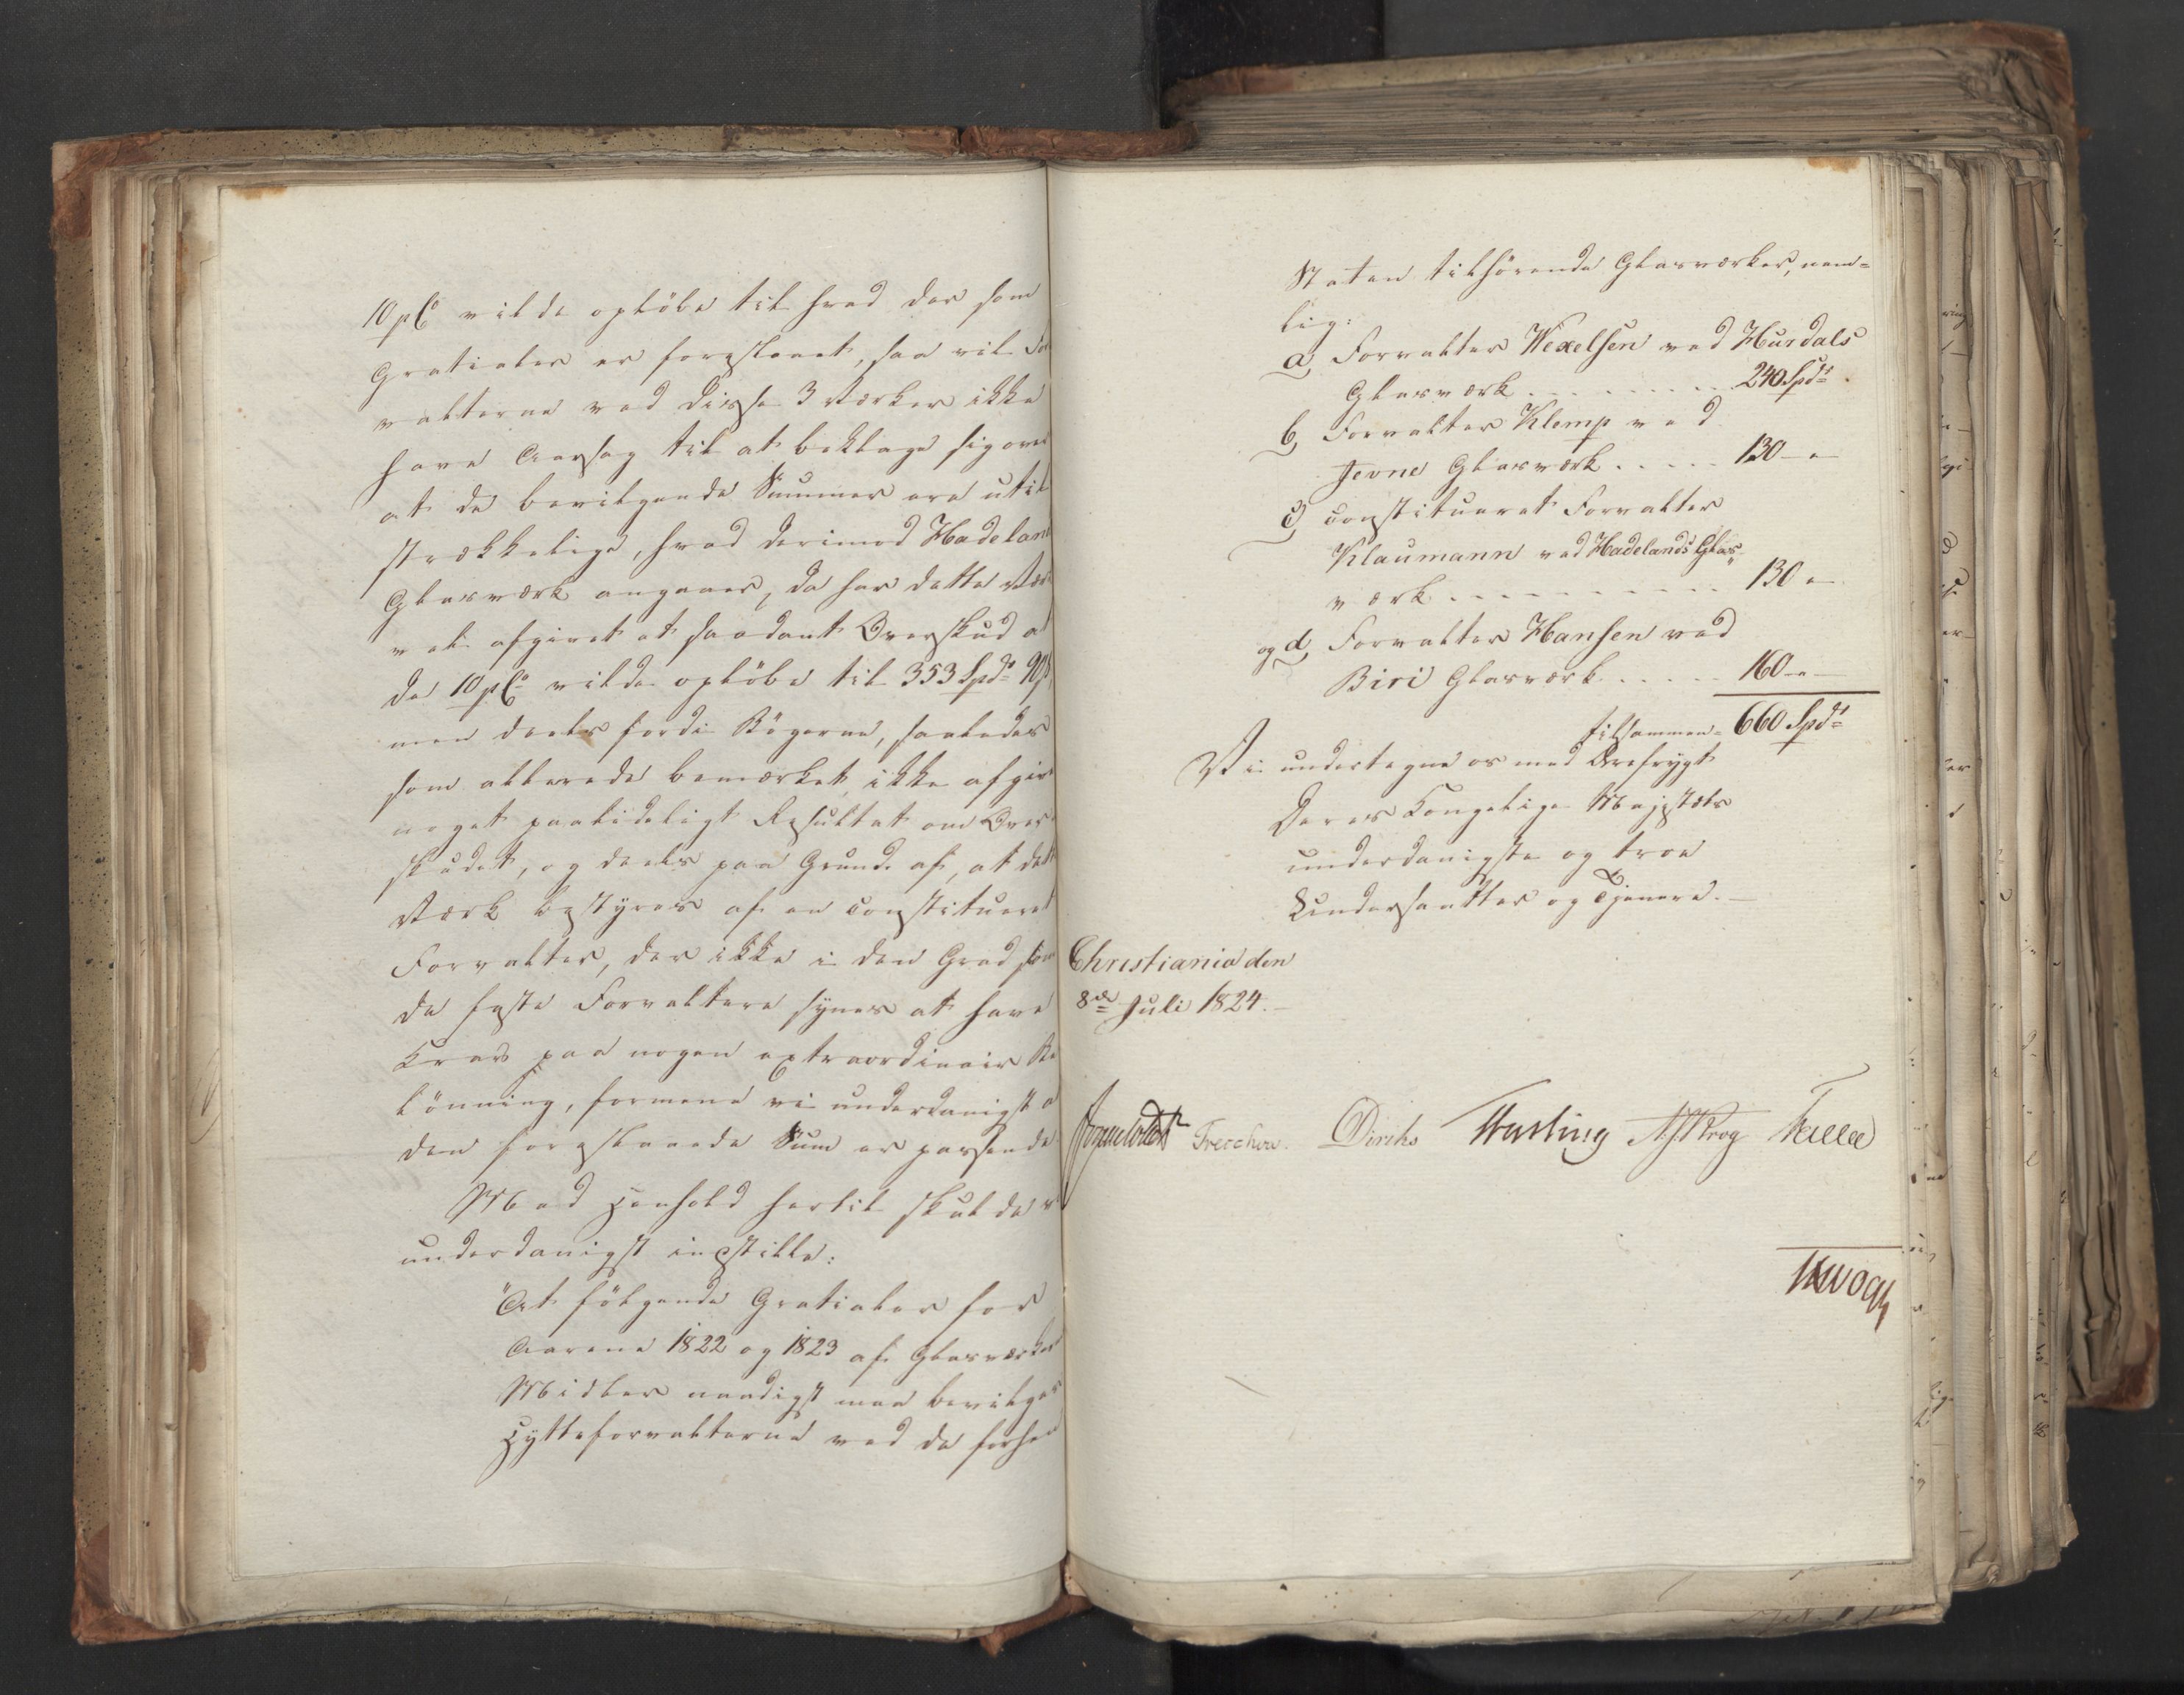 10 pC. vilde opløbe til hvad der som
Gratialer er foreslaaet, saa vil For
valterne ved disse 3 Værker ikke
have Aarsag til at beklage sig over
at de bevilgende Summer ere util
strækkelige, hvad derimod Hadeland
Glasværk angaaer, da har dette Vær
vel afgivet et saadant Overskud at
de 10 pC. vilde opløbe til 353 Spdr 90 s,
men deels fordi Bøgerne, saaledes
som allerede bemærket, ikke afgive
noget paalideligt Resultat om Over
skudet, og deels paa Grund af, at dette
Værk bestyres af en constitueret
Forvalter, der ikke i den Grad som
de faste Forvaltere synes at have
Krav paa nogen extraordinair Be
lønning, formene vi underdanigst at
den foreslaaede Sum er passende.
Med Henhold hertil skulde vi
underdanigst indstille:
"At følgende Gratialer for
Aarene 1822 og 1823 af Glasværkets
Midler naadigst maa bevilges
Hytteforvalterne ved de forhen
Staten tilhørende Glasværker, nem=
lig:
a, Forvalter Wexelsen ved Hurdals
Glasværk . . . . . . . . 240 Spdr.
b, Forvalter Klemp ved
Jevne Glasværk . . . . . 130 - "
c, constitueret Forvalter
Klaumann ved Hadelands Glas-
værk . . . . . . . . . . 130 "
og d, Forvalter Hansen ved
Biri Glasværk . . . . . 160 - " -
tilsammen = 660 Spdr
Vi undertegne os med Ærefrygt
Deres Kongelige Majestæts
underdanigste og troe
Undersaatter og Tjenere. -
Christiania den
8de Juli 1824. -
Sommerfeldt Treschow. Diriks Fasting N J Krog Keller
J H Vogt